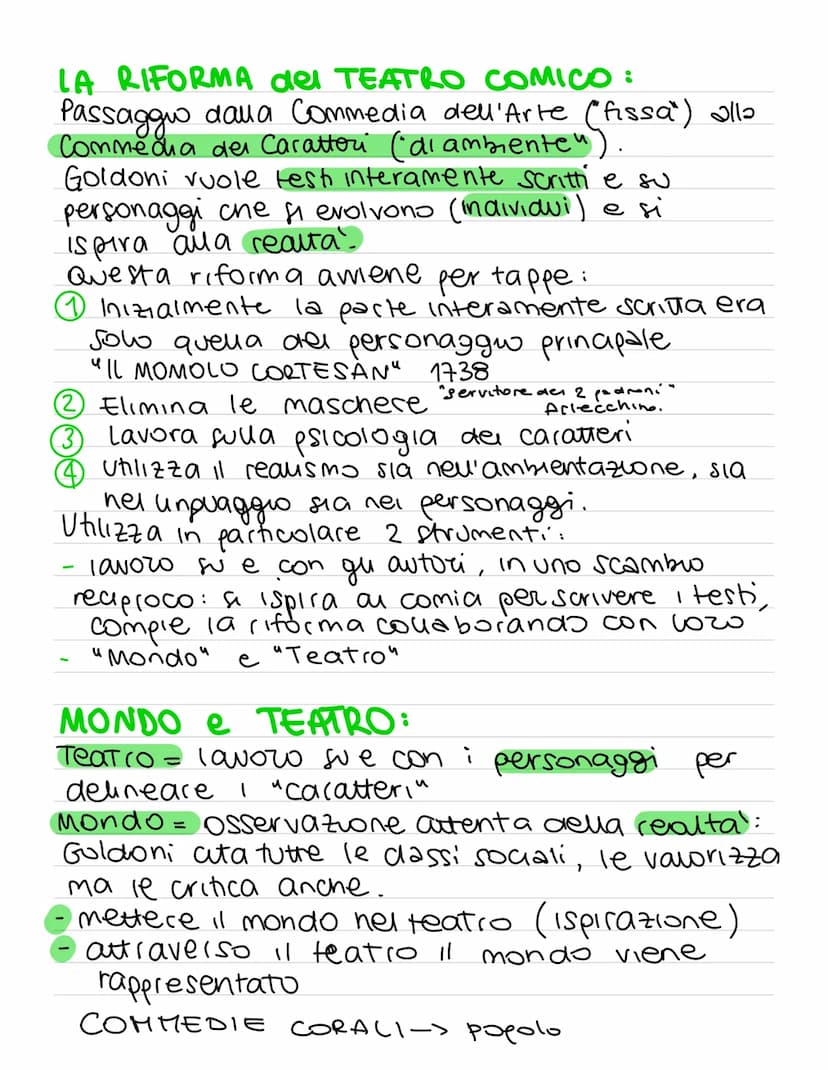 LA RIFORMA del TEATRO COMICO:
Passaggio dalla Commedia dell'Arte ("fissa") alla
Commedia dei Caratteri ("di ambiente").
Goldoni vuole testi interamente scritti e su
personaggi che si evolvono (individui) e si
ispira alla realtà.
Questa riforma avviene per tappe:
① Inizialmente la parte interamente scritta era
solo quella del personaggio principale
"IL MOMOLO CORTESAN" 1738
② Elimina le maschere "servitore dei 2 padroni"
Arlecchino.
③ Lavora sulla psicologia dei caratteri
④ Utilizza il realismo sia nell'ambientazione, sia
nel linguaggio sia nei personaggi.
Utilizza in particolare 2 strumenti:
- lavoro su e con gli autori, in uno scambio
reciproco: si ispira ai comia per scrivere i testi,
compie la riforma collaborando con loro
- "Mondo" e "Teatro"
MONDO e TEATRO:
Teatro = lavoro su e con i personaggi per
delineare i "caratteri"
Mondo = osservazione attenta della realtà:
Goldoni cita tutte le classi sociali, le valorizza
ma le critica anche.
- mettere il mondo nel teatro (ispirazione)
- attraverso il teatro il mondo viene
rappresentato
COMMEDIE CORALI -> popolo